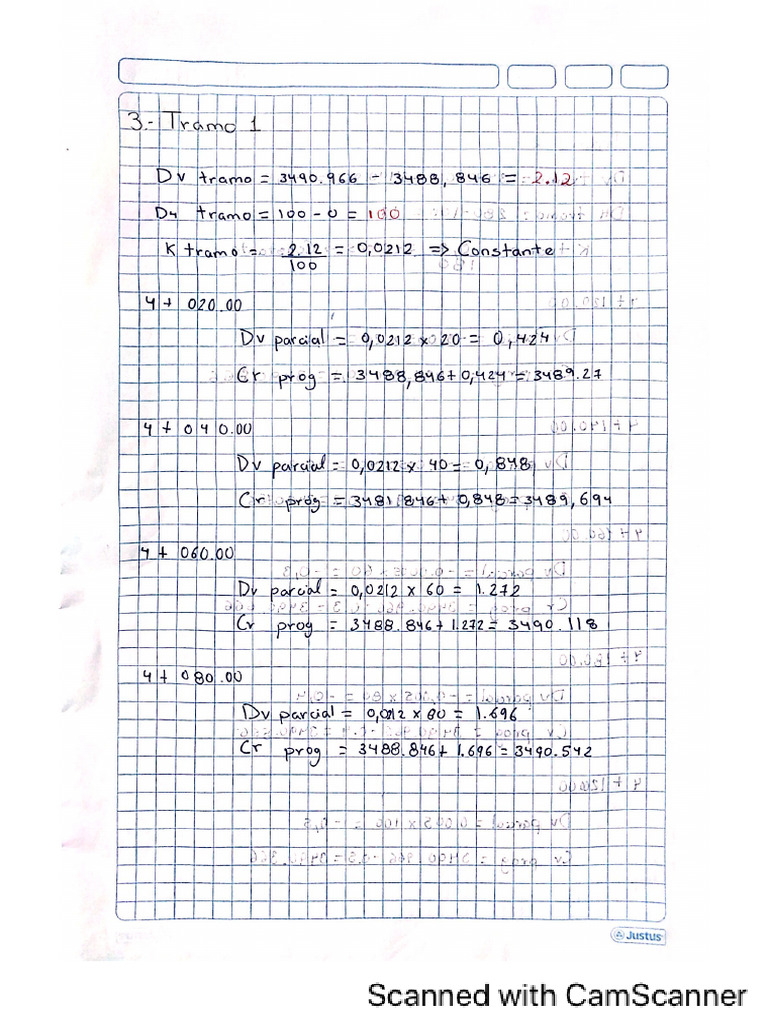 3.- Tramo 1
Dv tramo = 3490.966 - 3488,846 = 2.12
DH tramo = 100 - 0 = 100
K tramo = 2.12 / 100 = 0,0212 => Constante
4+ 020.00
Dv parcial = 0,0212 x 20 = 0,424
Cr prog = 3488,846 + 0,424 = 3489.27
4+ 040.00
Dv parcial = 0,0212 x 40 = 0,848
Cr prog = 3481846 + 0,848 = 3489,694
4+ 060.00
Dv parcial = 0,0212 x 60 = 1.272
Cr prog = 3488.846 + 1.272 = 3490.118
4+ 080.00
Dv parcial = 0,0212 x 80 = 1.696
Cr prog = 3488.846 + 1.696 = 3490.542
Justus
Scanned with CamScanner